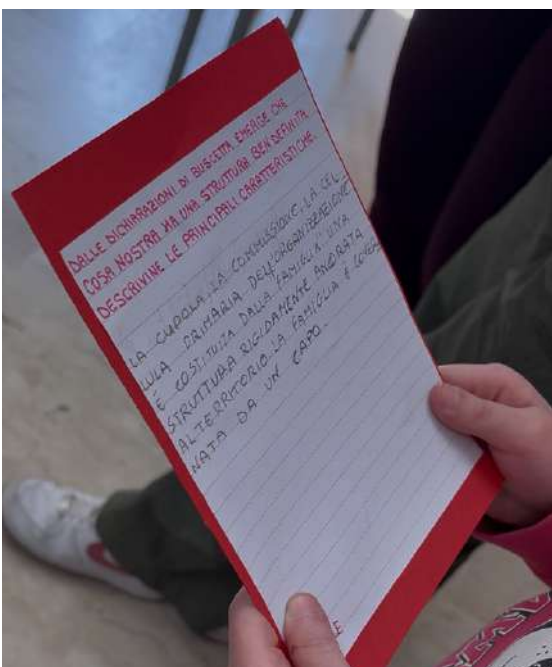 DALLE DICHIARAZIONI DI BUSCETTA EMERGE CHE
COSA NOSTRA HA UNA STRUTTURA BEN DEFINITA.
DESCRIVINE LE PRINCIPALI CARATTERISTICHE.
LA CUPOLA, LA COMMISSIONE, LA CEL
LULA PRIMARIA DELL'ORGANIZZAZIONE
É COSTITUITA DALLA FAMIGLIA UNA
STRUTTURA RIGIDAMENTE ANCORATA
AL TERRITORIO. LA FAMIGLIA É GOVER
NATA DA UN CAPO.